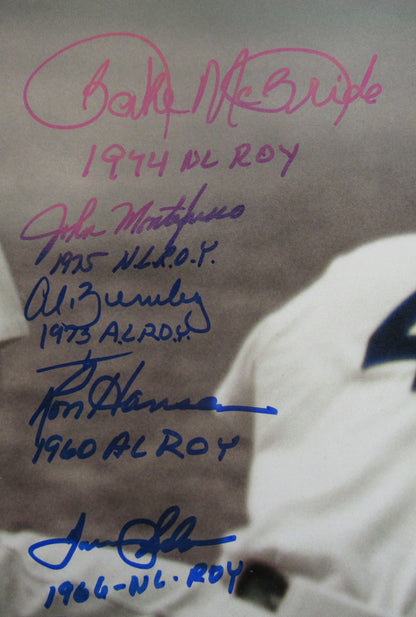 Bake McBride
1974 NL ROY
John Montefusco
1975 N.L.R.O.Y.
Al. Bumbry
1973 A.L.R.O.Y.
Ron Hansen
1960 AL ROY
1966-NL. ROY
4